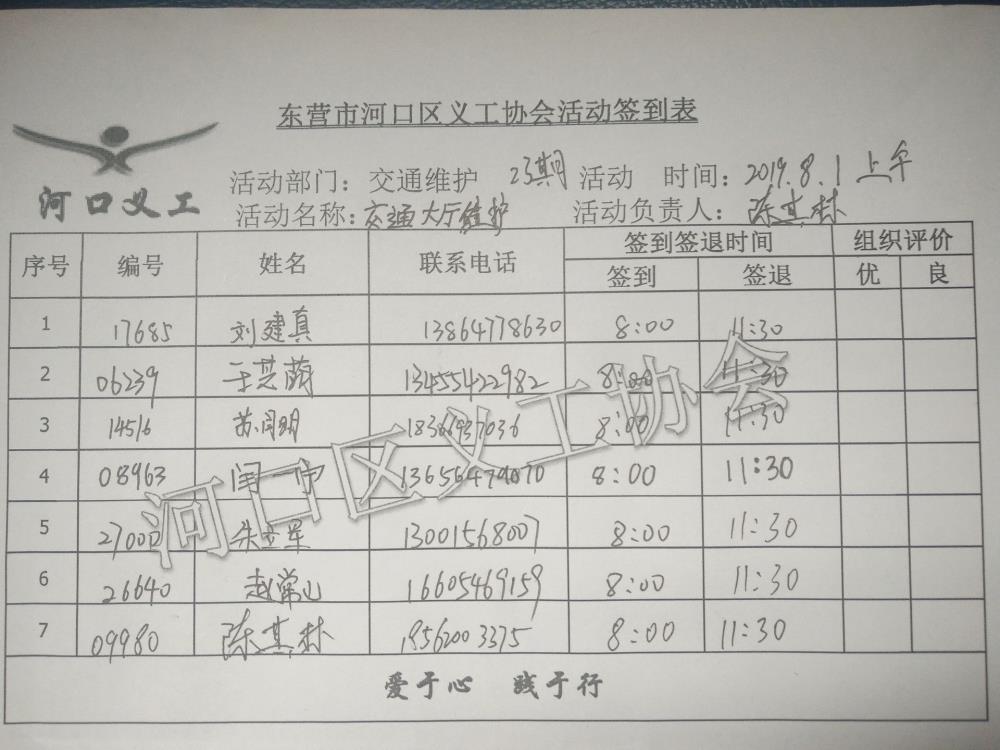 东营市河口区义工协会活动签到表
河口义工
活动部门：交通维护 23期 活动 时间：2019.8.1上午
活动名称：交通大厅维护 活动负责人：陈其林
序号 编号 姓名 联系电话 签到签退时间 组织评价
签到 签退 优 良
1 17685 刘建真 13864778630 8:00 11:30
2 06239 于芝萌 13455422982 8:00 11:30
3 14516 苏月明 18366937036 8:00 11:30
4 08963 闫 宁 13656479070 8:00 11:30
5 27000 朱立军 13001568007 8:00 11:30
6 26640 赵常山 16605469159 8:00 11:30
7 09980 陈其林 18562003375 8:00 11:30
河口区义工协会
爱于心 践于行